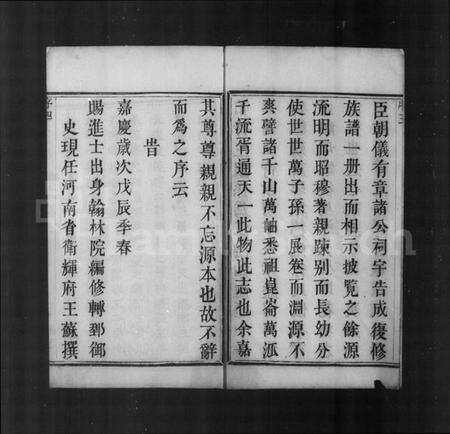 臣朝儀有章諸公祠宇告成復修
族譜一册出而相示披覧之餘源
流明而昭穆著親踈别而長幼分
使世世萬子孫一展卷而淵源不
爽譬諸千山萬岫悉祖崑崙萬派
千流胥通天一此物此志也余嘉
其尊尊親親不忘源本也故不辭
而爲之序云
旹
嘉慶歲次戊辰季春
賜進士出身翰林院編修轉都御
史現任河南省衛輝府王蘇撰